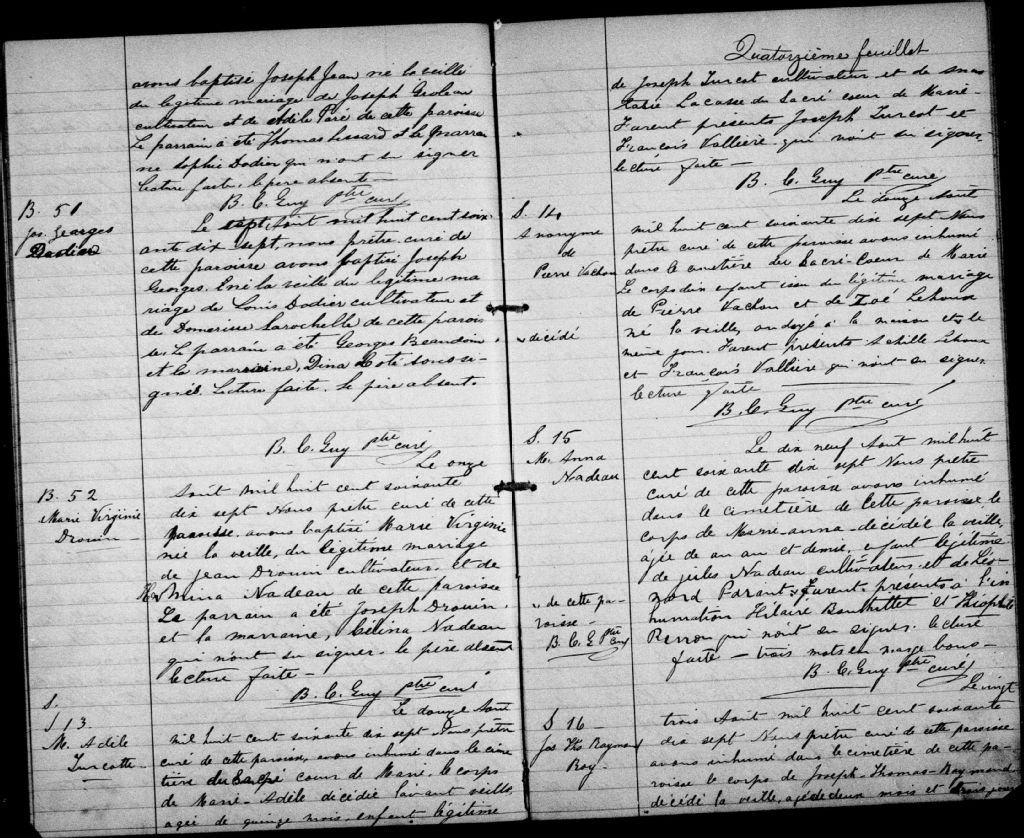 avons baptisé Joseph Jean né la veille
du légitime mariage de Joseph
cultivateur et de Adèle Paré de cette paroisse
Le parrain a été Thomas Lessard et la marrai
ne Sophie Dodier qui n'ont su signer
lecture faite, le père absent
B. C. Guy ptre curé
B. 51
Jos. Georges
Dodier
Le sept, Août mil huit cent soix
ante dix sept, nous prêtre curé de
cette paroisse avons baptisé Joseph
Georges. né la veille du légitime ma
riage de Louis Dodier cultivateur et
de Domerise Larochelle de cette parois
se. Le parrain a été Georges Beaudoin
et la marraine, Dina Coté soussi-
gnés. Lecture faite. le père absent.
B. C. Guy ptre curé
Le onze
B. 52
Marie Virginie
Drouin
Août mil huit cent soixante
dix sept Nous prêtre curé de cette
paroisse, avons baptisé Marie Virginie
née la veille, du légitime mariage
de Jean Drouin cultivateur et de
Nadeau de cette paroisse
Le parrain a été Joseph Drouin.
et la marraine, Célina Nadeau
qui n'ont su signer. le père absent
lecture faite —
B. C. Guy ptre curé
Le douze Août
S.
S 13
M. Adèle
Turcotte
mil huit cent soixante dix sept Nous prêtre
curé de cette paroisse, avons inhumé dans le cime
tière du Sacré coeur de Marie, le corps
de Marie-Adèle décédée l'avant veille
agée de quinze mois, enfant légitime
Quatorzième feuillet
de Joseph Turcot cultivateur et de
Lacasse du Sacré coeur de Marie-
Furent présents Joseph Turcot et
François Vallière, qui n'ont su signer
lecture faite —
B. C. Guy ptre curé
Le douze Août
S. 14
Anonyme
de
Pierre Vachon
mil huit cent soixante dix sept Nous
prêtre curé de cette paroisse avons inhumé
dans le cimetière du Sacré-Coeur de Marie
Le corps d'un enfant issu du légitime mariage
de Pierre Vachon et de Zoé Lehoux
décédé
né la veille, ondoyé à la maison et le
même jour. Furent présents Achille Lehoux
et François Vallière qui n'ont su signer
lecture faite
B. C. Guy ptre curé
S. 15
M. Anna
Nadeau
Le dix neuf Août mil huit
cent soixante dix sept Nous prêtre
curé de cette paroisse avons inhumé
dans le cimetière de cette paroisse, le
corps de Marie-Anna - décédée la veille,
agée de un an et demie, enfant légitime
de Jules Nadeau cultivateur, et de
Parant Furent présents à l'in
de cette pa-
roisse —
B. C. G Ptre curé
humation Hilaire et Théophile
Perron qui n'ont su signer. lecture
faite — trois mots en marge bons —
B. C. Guy ptre curé
Le vingt
S 16 —
Jos Ths Raymond
Roy —
trois Août mil huit cent soixante
dix sept Nous prêtre curé de cette paroisse
avons inhumé dans le cimetière de cette pa-
roisse le corps de Joseph-Thomas-Raymond
décédé la veille, agé de deux mois et